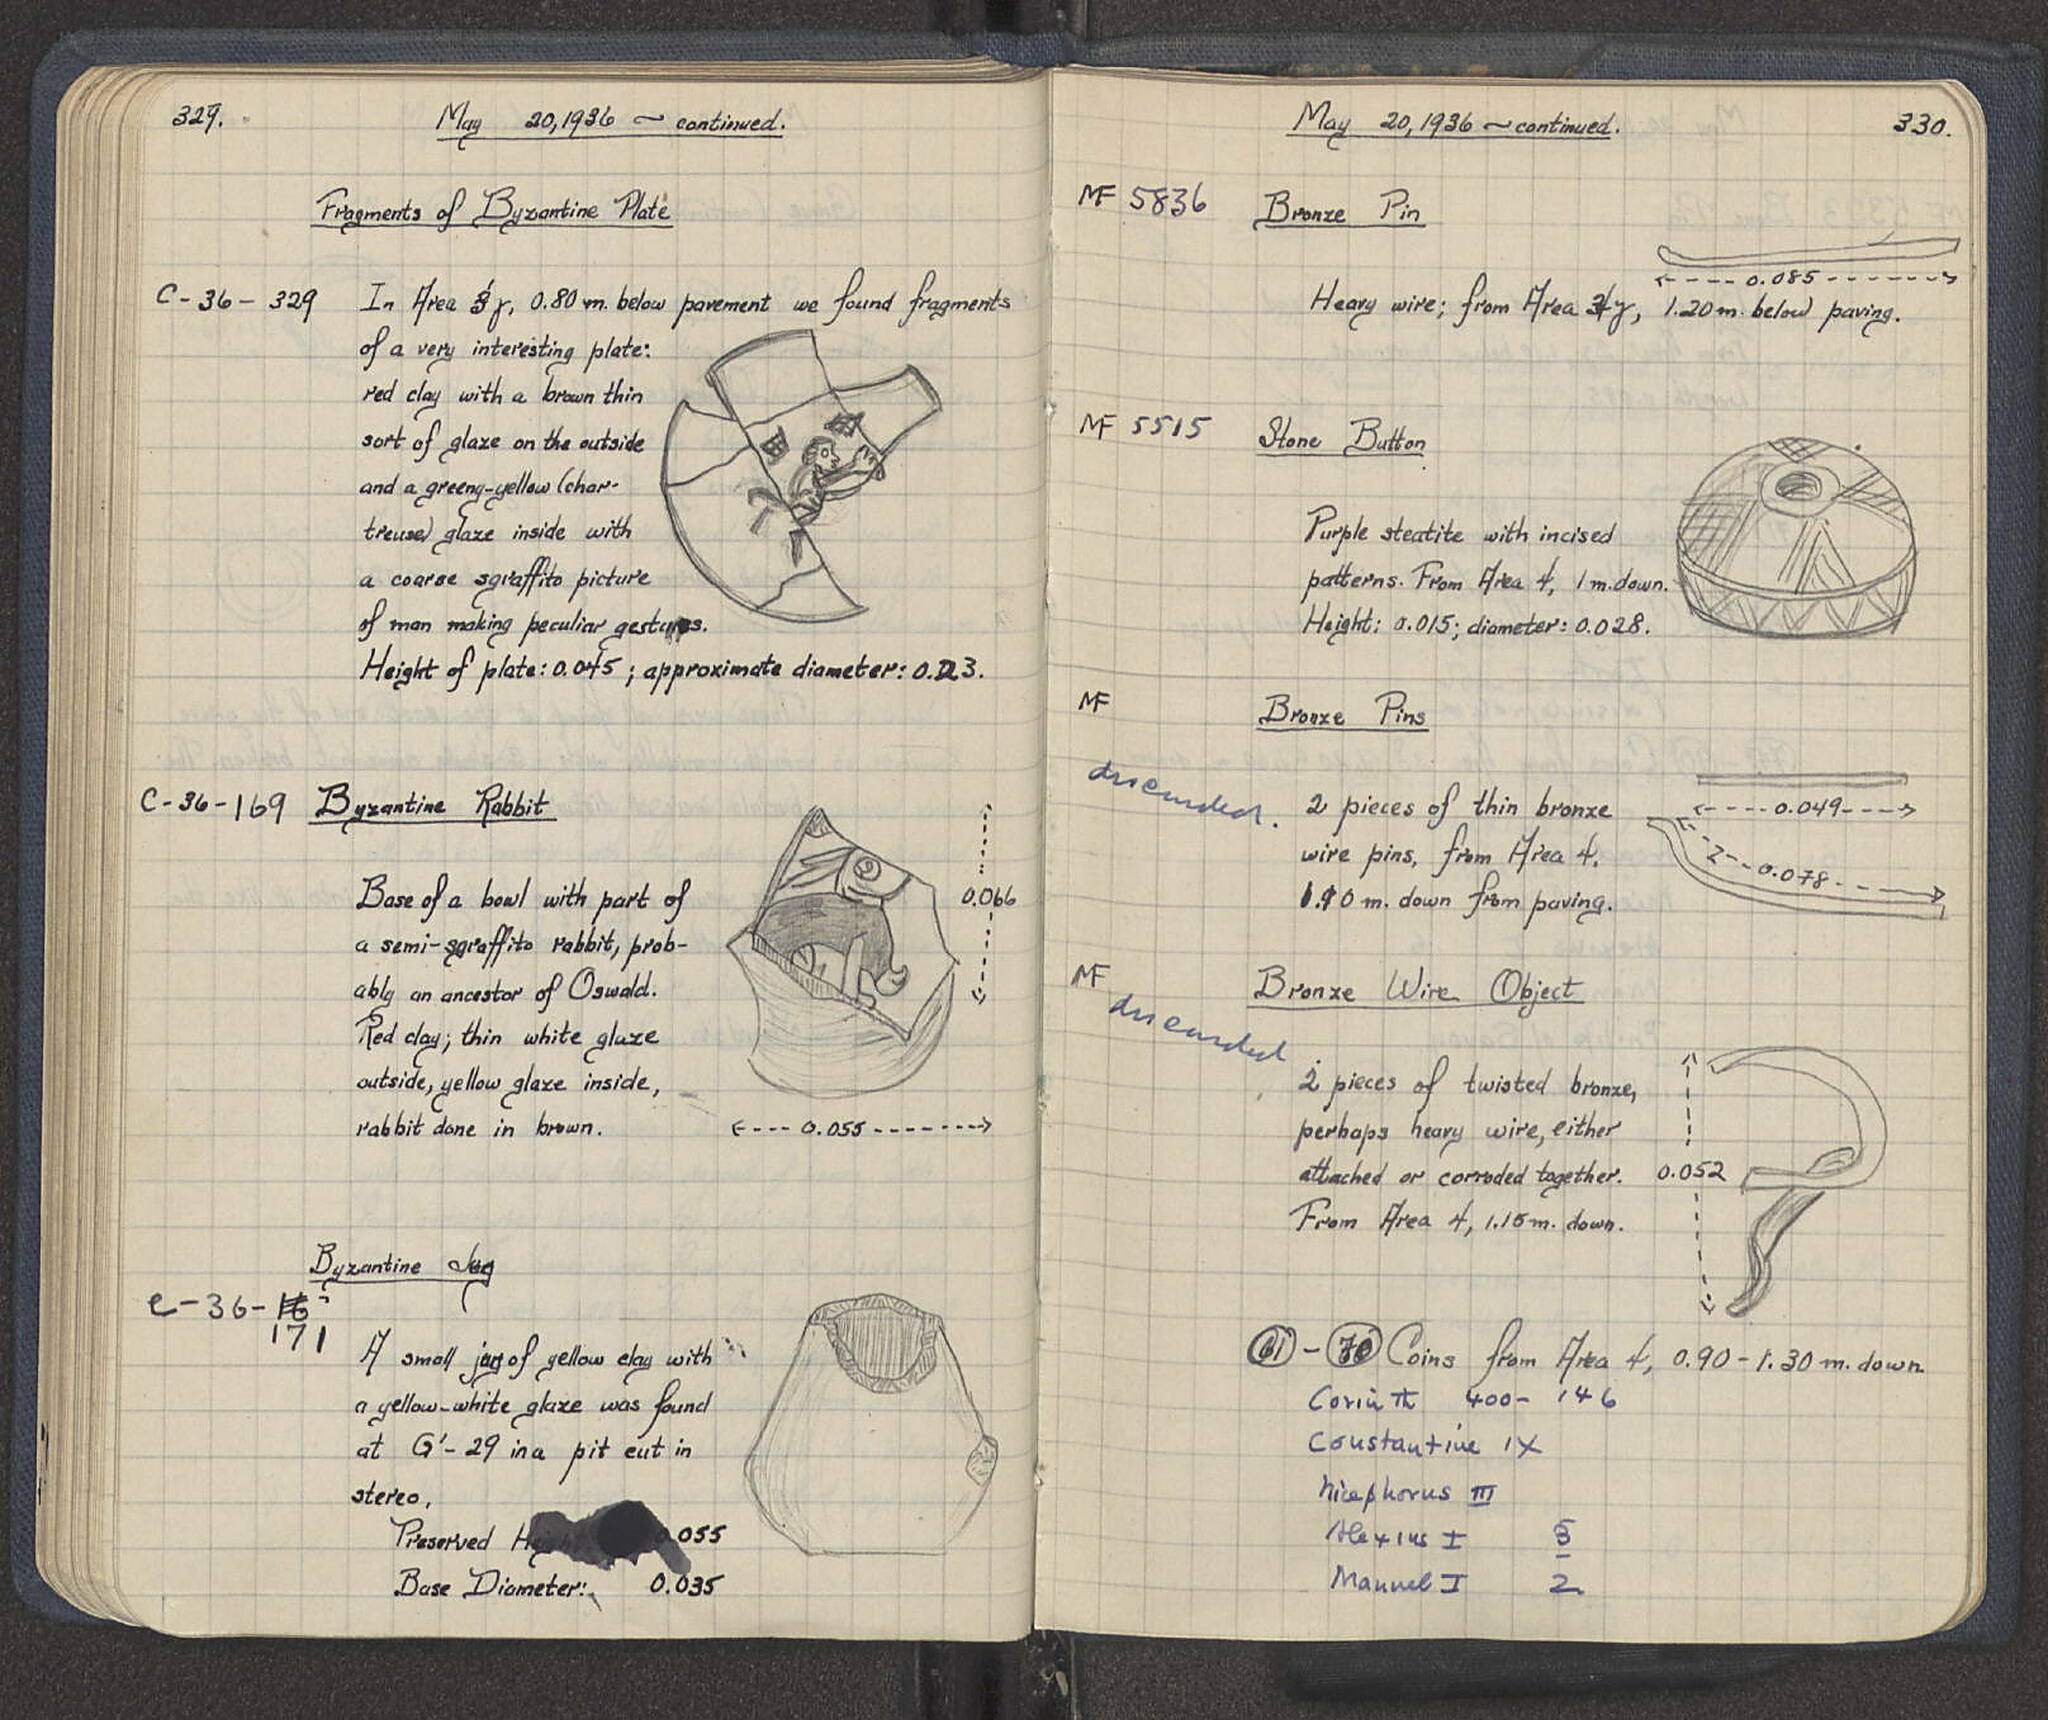 329.
May 20, 1936 ~ continued.
Fragments of Byzantine Plate
C-36-329
In Area γ, 0.80 m. below pavement we found fragments
of a very interesting plate:
red clay with a brown thin
sort of glaze on the outside
and a greeny-yellow (char-
treuse) glaze inside with
a coarse sgraffito picture
of man making peculiar gestures.
Height of plate: 0.045; approximate diameter: 0.23.
C-36-169 Byzantine Rabbit
Base of a bowl with part of
a semi-sgraffito rabbit, prob-
ably an ancestor of Oswald.
Red clay; thin white glaze
outside, yellow glaze inside,
rabbit done in brown.
0.066
0.055
Byzantine Jug
C-36-
171
A small jug of yellow clay with
a yellow-white glaze was found
at G'-29 in a pit cut in
stereo.
Preserved 0.055
Base Diameter: 0.035
May 20, 1936 ~ continued.
330.
MF 5836 Bronze Pin
0.085
Heavy wire; from Area γ, 1.20 m. below paving.
MF 5515 Stone Button
Purple steatite with incised
patterns. From Area 4, 1 m. down.
Height: 0.015; diameter: 0.028.
MF Bronze Pins
discarded.
2 pieces of thin bronze
wire pins, from Area 4.
1.10 m. down from paving.
0.049
0.078
MF Bronze Wire Object
discarded
2 pieces of twisted bronze,
perhaps heavy wire, either
attached or corroded together.
From Area 4, 1.15 m. down.
0.052
61 - 70 Coins from Area 4, 0.90-1.30 m. down
Corinth 400-146
Constantine IX
Nicephorus III
Alexius I 5
Manuel I 2